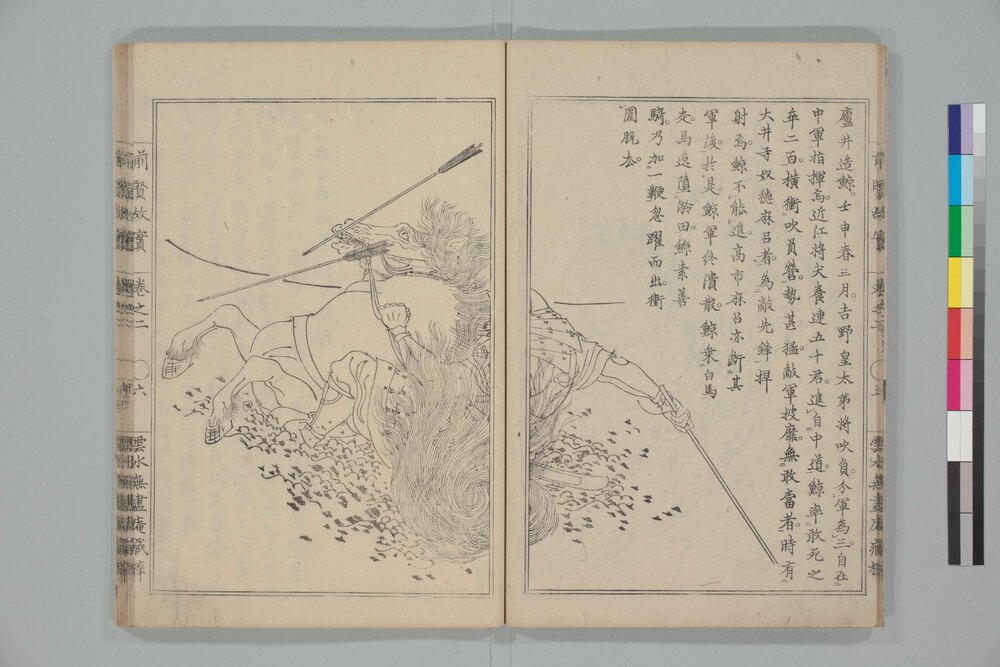 廬井造鯨。壬申春三月。吉野皇太弟將吹負。今軍為三。自在
中軍指揮焉。近江將犬養連五十君。進自中道。鯨率敢死之
卒二百。橫衝吹負營。勢甚猛。敵軍披靡。無敢當者。時有
大井寺奴徳麻呂者。為敵先鋒捍
射焉。鯨不能進。高市麻呂亦斷其
軍後。於是鯨軍終潰散。鯨乘白馬
走。馬逸墮泥田。鯨素善
騎。乃加一鞭。忽躍而出。衝
圍脫去。
前賢故實 卷之二 六 雲水無盡庵藏梓